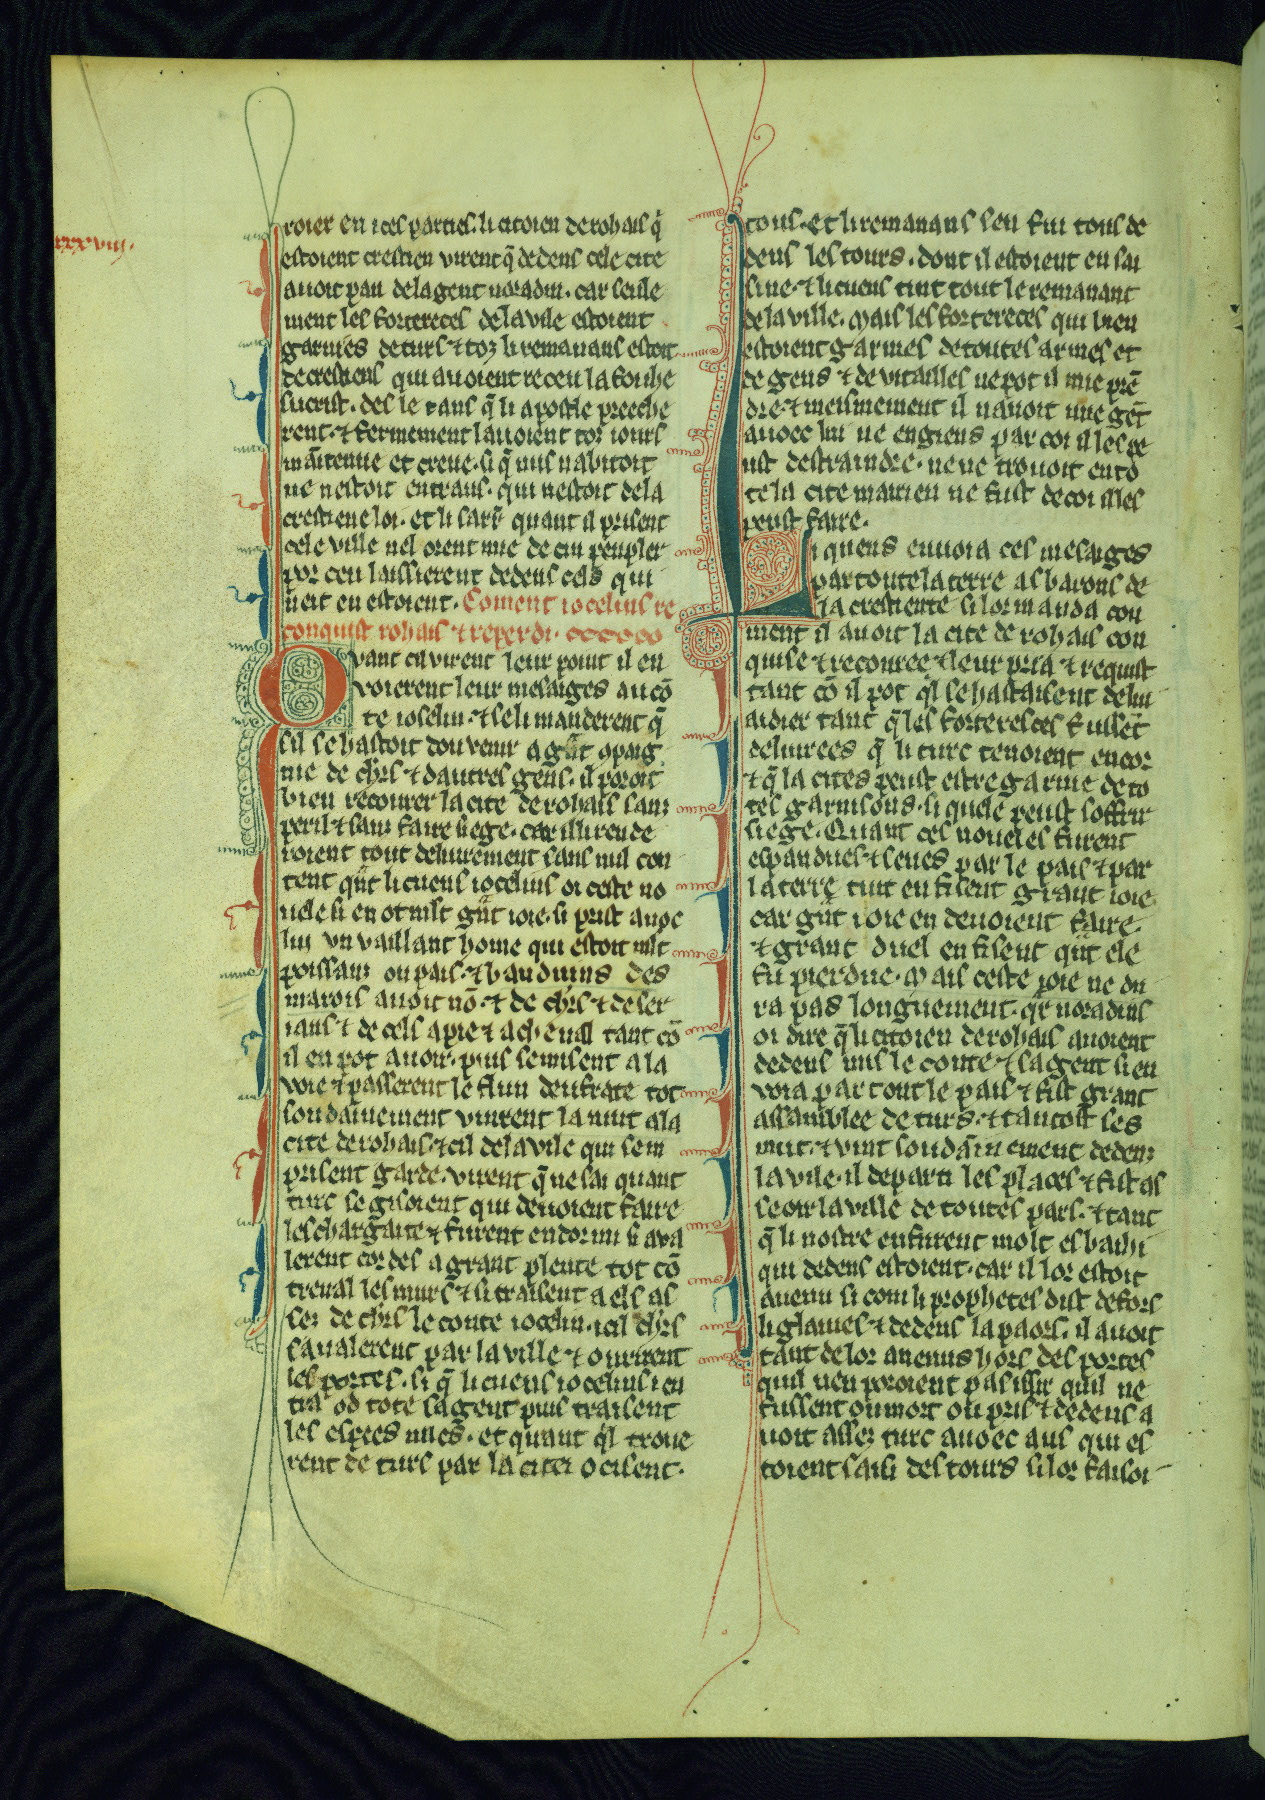 xxxviij.
roier en ices parties. li citoien de rohais q̃
estoient crestien virent q̃ dedens cele cite
auoit pau de la gent noradin. car seule
ment les fortereces de la vile estoient
garnies de turs ⁊ toz li remanans estoit
de crestiens qui auoient receu la foi ihe
sucrist. des le tans q̃ li apostle preeche
rent. ⁊ fermement lauoient toz iours
mãitenue et creue. si q̃ nus nabitoit
ne nestoit entraus. qui nestoit de la
crestiene loi. et li sarr̃ quant il prisent
cele ville nel orent mie de cui peupler
por ceu laissierent dedens cels qui
neit en estoient. Coment iocelins re
conquist rohais ⁊ reperdi.
Quant cil virent leur point il en
voierent leur mesaiges au cõ
te ioselin. ⁊ se li manderent q̃
sil se hastoit dou venir a gñt ɔpaig
nie de chr̃s ⁊ dautres gens. il poroit
bien recourer la cite de rohais sans
peril ⁊ sans faire siege. car il li rende
roient tout deliurement sans nul con
tent qñt li cuens iocelins oi ceste no
uele si en ot mlt gñt ioie. si prist auoc
lui vn vaillant home qui estoit mlt
poissanz ou pais. ⁊ bauduins des
marois auoit nõ. ⁊ de chr̃s ⁊ de ser
ians ⁊ de cels a pie ⁊ a cheual tant cõ
il en pot auoir. puis se misent a la
voie ⁊ passerent le flun deufrate tot
soudainement vinrent la nuit a la
cite de rohais. ⁊ cil de la vile qui sem
prisent garde. virent q̃ ne sai quant
turc se gisoient qui deuoient faire
leschargaite ⁊ furent endormi si ava
lerent cordes a grant plente tot cõ
treual les murs ⁊ si traisent a els as
sez de chr̃s le conte iocelin. icil chr̃s
saualerent par la ville ⁊ ourirent
les portes. si q̃ li cuens iocelins i en
tra od tote sa gent puis traisent
les espees nues. et quant q̃l troue
rent de turs par la citei ocisent.
tous. et li remanans sen fui tous de
dens les tours. dont il estoient en sai
sine. ⁊ li cuens tint tout le remanant
de la ville. Mais les fortereces qui bien
estoient garnies de toutes armes et
de gens ⁊ de vitailles ne pot il mie prẽ
dre. ⁊ meismement il nauoit mie gẽt
auoec lui ne engiens par coi il les pe
ust destraindre. ne ne trouoit en to
te la cite mairien ne fust de coi il les
peust faire.
Li quens enuoia ces mesaiges
par toute la terre as barons de
la crestiente si lor manda con
ment il auoit la cite de rohais con
quise ⁊ recouree ⁊ leur pria ⁊ requist
tant cõ il pot q̃l se hastaisent de lui
aidier tant q̃ les forteresces fussẽt
deliurees q̃ li turc tenoient encor
⁊ q̃ la cites peust estre garnie de to
tes garnisons. si quele peust soffrir
siege. Quant ces noueles furent
espandues ⁊ seues par le pais ⁊ par
la terre tuit en fisent grant ioie
car gñt ioie en deuoient faire.
⁊ grant duel en fisent qñt ele
fu pierdue. Mais ceste ioie ne du
ra pas longuement. qr̃ noradins
oi dire q̃ li citoien de rohais auoient
dedens mis le conte ⁊ sa gent si en
voia par tout le pais ⁊ fist grant
assamblee de turs. ⁊ tantost ses
mut. ⁊ vint soudãinement dedenz
la vile. il departi les places ⁊ fist as
seoir la ville de toutes pars. ⁊ tant
q̃ li nostre en furent molt esbahi
qui dedens estoient. car il lor estoit
auenu si com li prophetes dist defors
li glaiues ⁊ dedens la paors. il auoit
tant de lor anemis hors des portes
quil nen pooient pas issir quil ne
fussent ou mort ou pris ⁊ dedens a
uoit assez turc auoec aus qui es
toient saisi des tours si lor faisoi